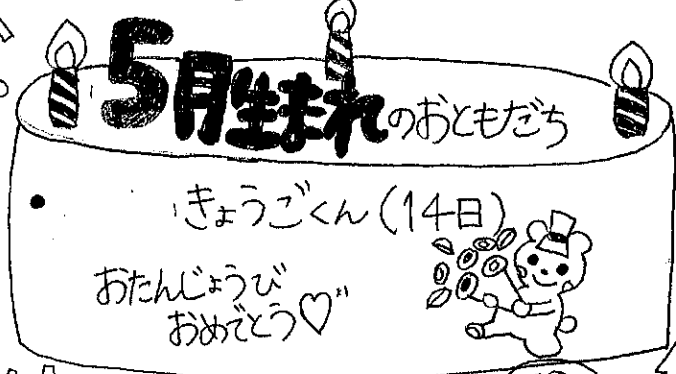 5月生まれのおともだち
きょうごくん(14日)
おたんじょうび
おめでとう♡